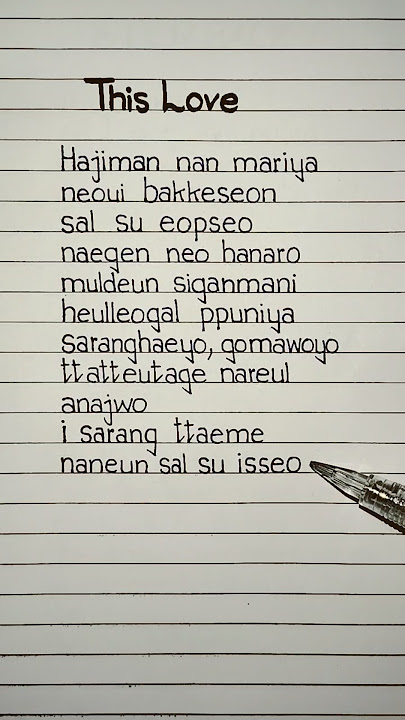 This Love
Hajiman nan mariya
neoui bakkeseon
sal su eopseo
naegen neo hanaro
muldeun siganmani
heulleogal ppuniya
saranghaeyo, gomawoyo
ttatteutage nareul
anajwo
i sarang ttaeme
naneun sal su isseo